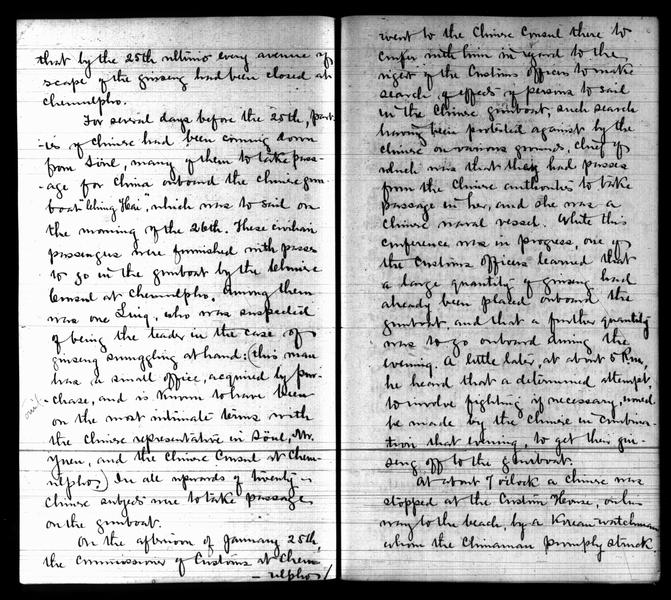 that by the 25th ultimo every avenue of
scape of the ginseng had been closed at
Chemulpho.
For several days before the 25th, part-
-ies of Chinese had been coming down
from Söul, many of them to take pass-
-age for China onboard the Chinese gun-
boat "Ching Hai", which was to sail on
the morning of the 26th. These civilian
passengers were furnished with passes
to go in the gunboat by the Chinese
Consul at Chemulpho. Among them
was one Ling, who was suspected
of being the leader in the case of
ginseng smuggling at hand: (this man
has a small office, acquired by pur-
chase, and is known to have been
on the most intimate terms with
the Chinese representative in Söul, Mr.
Yuen, and the Chinese Consul at Chem-
ulpho.) In all upwards of twenty
Chinese subjects were to take passage
on the gunboat.
On the afternoon of January 25th,
the Commissioner of Customs at Chem-
-ulpho
went to the Chinese Consul there to
confer with him in regard to the
right of the Customs officers to make
search of effects of persons to sail
in the Chinese gunboat, such search
having been protested against by the
Chinese on various grounds, chief of
which was that they had passes
from the Chinese authorities to take
passage in her, and she was a
Chinese naval vessel. While this
conference was in progress, one of
the Customs officers learned that
a large quantity of ginseng had
already been placed onboard the
gunboat, and that a further quantity
was to go onboard during the
evening. A little later, at about 5 P.m,
he heard that a determined attempt,
to involve fighting if necessary, would
be made by the Chinese in combina-
tion that evening, to get their gin-
seng off to the gunboat.
At about 7 o'clock a Chinese was
stopped at the Custom House, on his
way to the beach, by a Korean watchman
whom the Chinaman promptly struck.